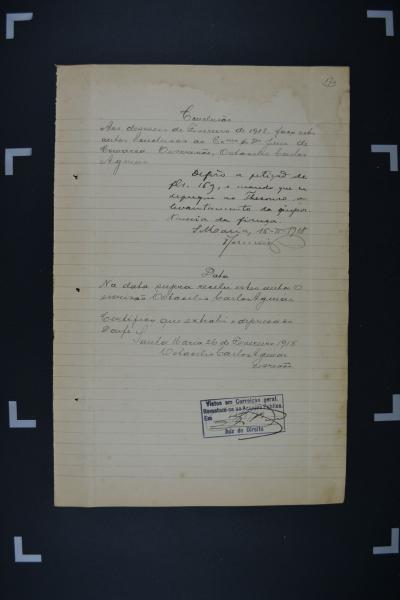 Conclusão
Aos dezeseis de Fevereiro de 1918, faço estes
autos conclusos ao Exmo Sr Dr Juiz de
Comarca. O escrivão, Octacilio Carlos
Aguiar
Defiro a petição de
fls. 169, e mando que se
depreque ao Thesouro o
levantamento da impor-
tancia da fiança.
S. Maria, 16-II-1918
Data
Na data supra recebi estes autos. O
escrivão Octacilio Carlos Aguiar
Certifico que extrahi a deprecada
Doufé.
Santa Maria 26 de Fevereiro 1918
Octacilio Carlos Aguiar
escrivão
Vistos em Correição geral.
Remetam-se ao Archivo Publico.
Em
Juiz de Direito